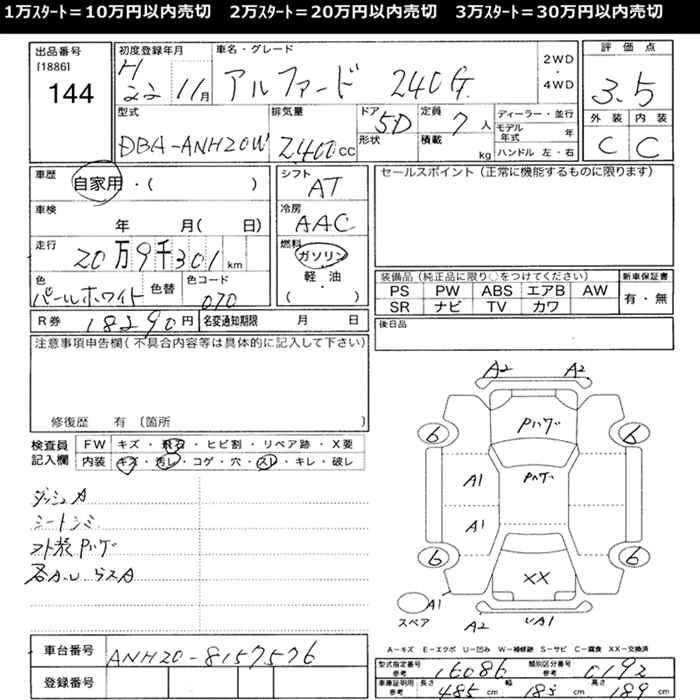 1万ｽﾀｰﾄ＝10万円以内売切　2万ｽﾀｰﾄ＝20万円以内売切　3万ｽﾀｰﾄ＝30万円以内売切
出品番号
[1886]
144
初度登録年月
H22 11月
車名・グレード
アルファード 240G
2WD
・
4WD
評価点
3.5
外装 内装
C C
型式
DBA-ANH20W
排気量
2400cc
ドア 5D
形状
定員 7人
積載 kg
ディーラー・並行
モデル年式 年
ハンドル 左・右
車歴 自家用・( )
車検 年 月( 日)
走行 20万9千301km
色 パールホワイト
色替
色コード 070
シフト AT
冷房 AAC
燃料 ガソリン
軽・油
・
( )
セールスポイント（正常に機能するものに限ります）
装備品（純正品に限り○をつけてください）
PS PW ABS エアB AW
SR ナビ TV カワ
新車保証書
有・無
R券 18290円
名変通知期限 月 日
後日品
注意事項申告欄（不具合内容等は具体的に記入して下さい）
修復歴 有〔箇所 〕
検査員記入欄
FW キズ・飛石・ヒビ割・リペア跡・X要
内装 キズ・汚レ・コゲ・穴・スレ・キレ・破レ
ダッシュA
シートシミ
外装Pハゲ
A2 A2
Pハゲ
6 6
Pハゲ
A1
A1
6 6
XX
A1
スペア
A2 UA1
A－キズ E－エクボ U－凹み W－補修跡 S－サビ C－腐食 XX－交換済
車台番号 ANH20-8157576
登録番号
型式指定番号参考 16086
類別区分番号参考 0192
車庫証明用参考 長さ 485cm 幅 183cm 高さ 189cm